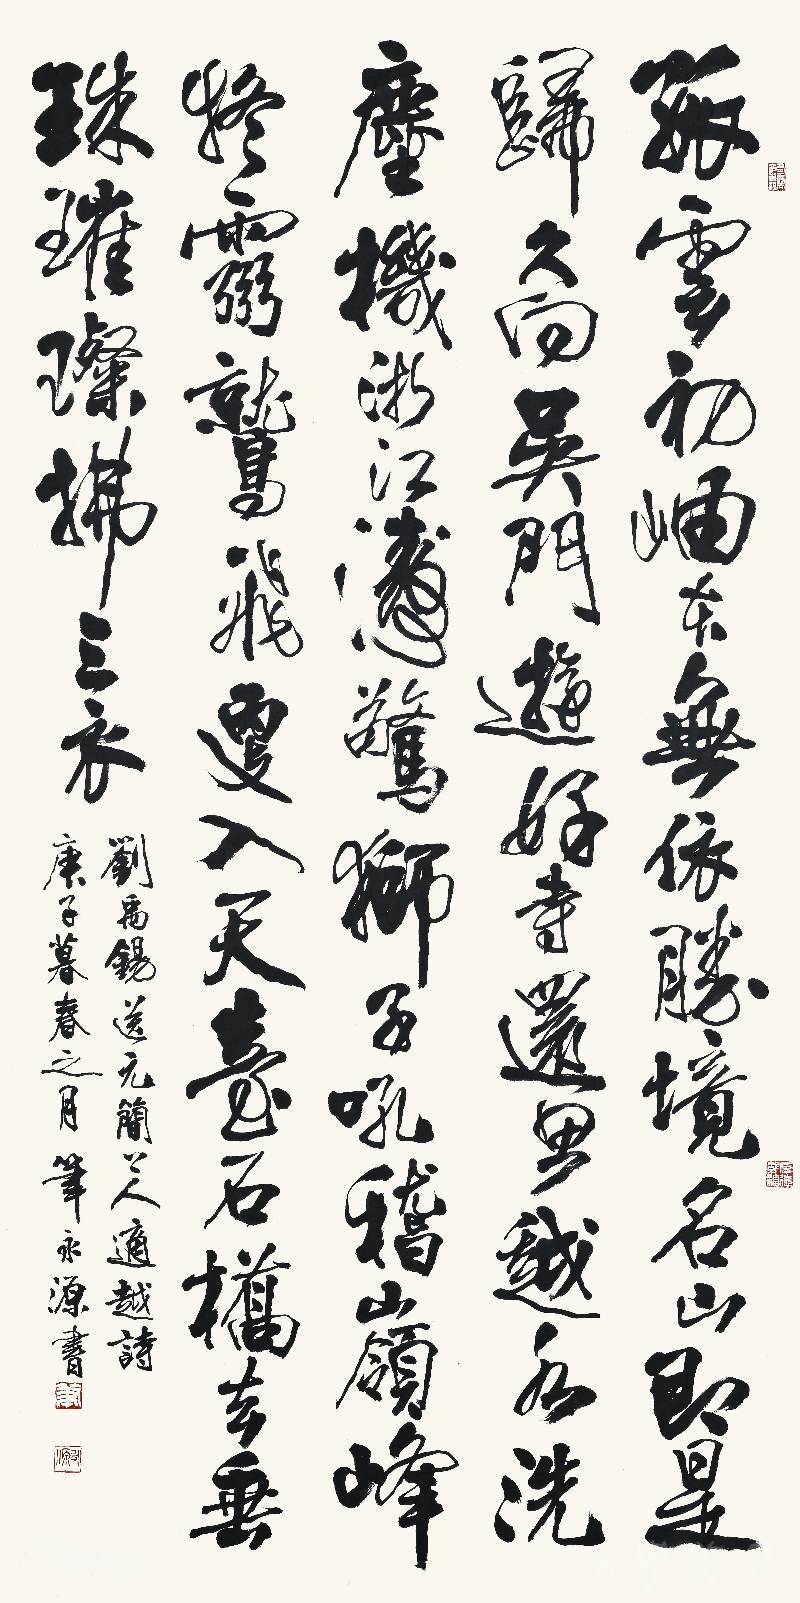 孤雲初岫本無依勝境名山即是
歸久向吳門遊好寺還思越水洗
塵機浙江濤驚獅子吼稽嶺峰
疑靈鷲飛更入天臺石橋去垂
珠璀璨拂三衣
劉禹錫送元簡上人適越詩
庚子暮春之月永源書